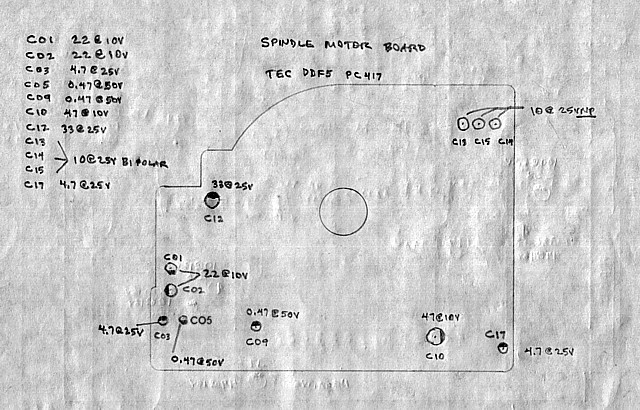 C01 22@10V
C02 22@10V
C03 4.7@25V
C05 0.47@50V
C09 0.47@50V
C10 47@10V
C12 33@25V
C13
C14 10@25V BIPOLAR
C15
C17 4.7@25V
SPINDLE MOTOR BOARD
TEC DDF5 PC417
10@25V NP
C13 C15 C14
33@25V
C12
C01
22@10V
C02
4.7@25V
C03
C05
0.47@50V
0.47@50V
C09
47@10V
C10
C17
4.7@25V